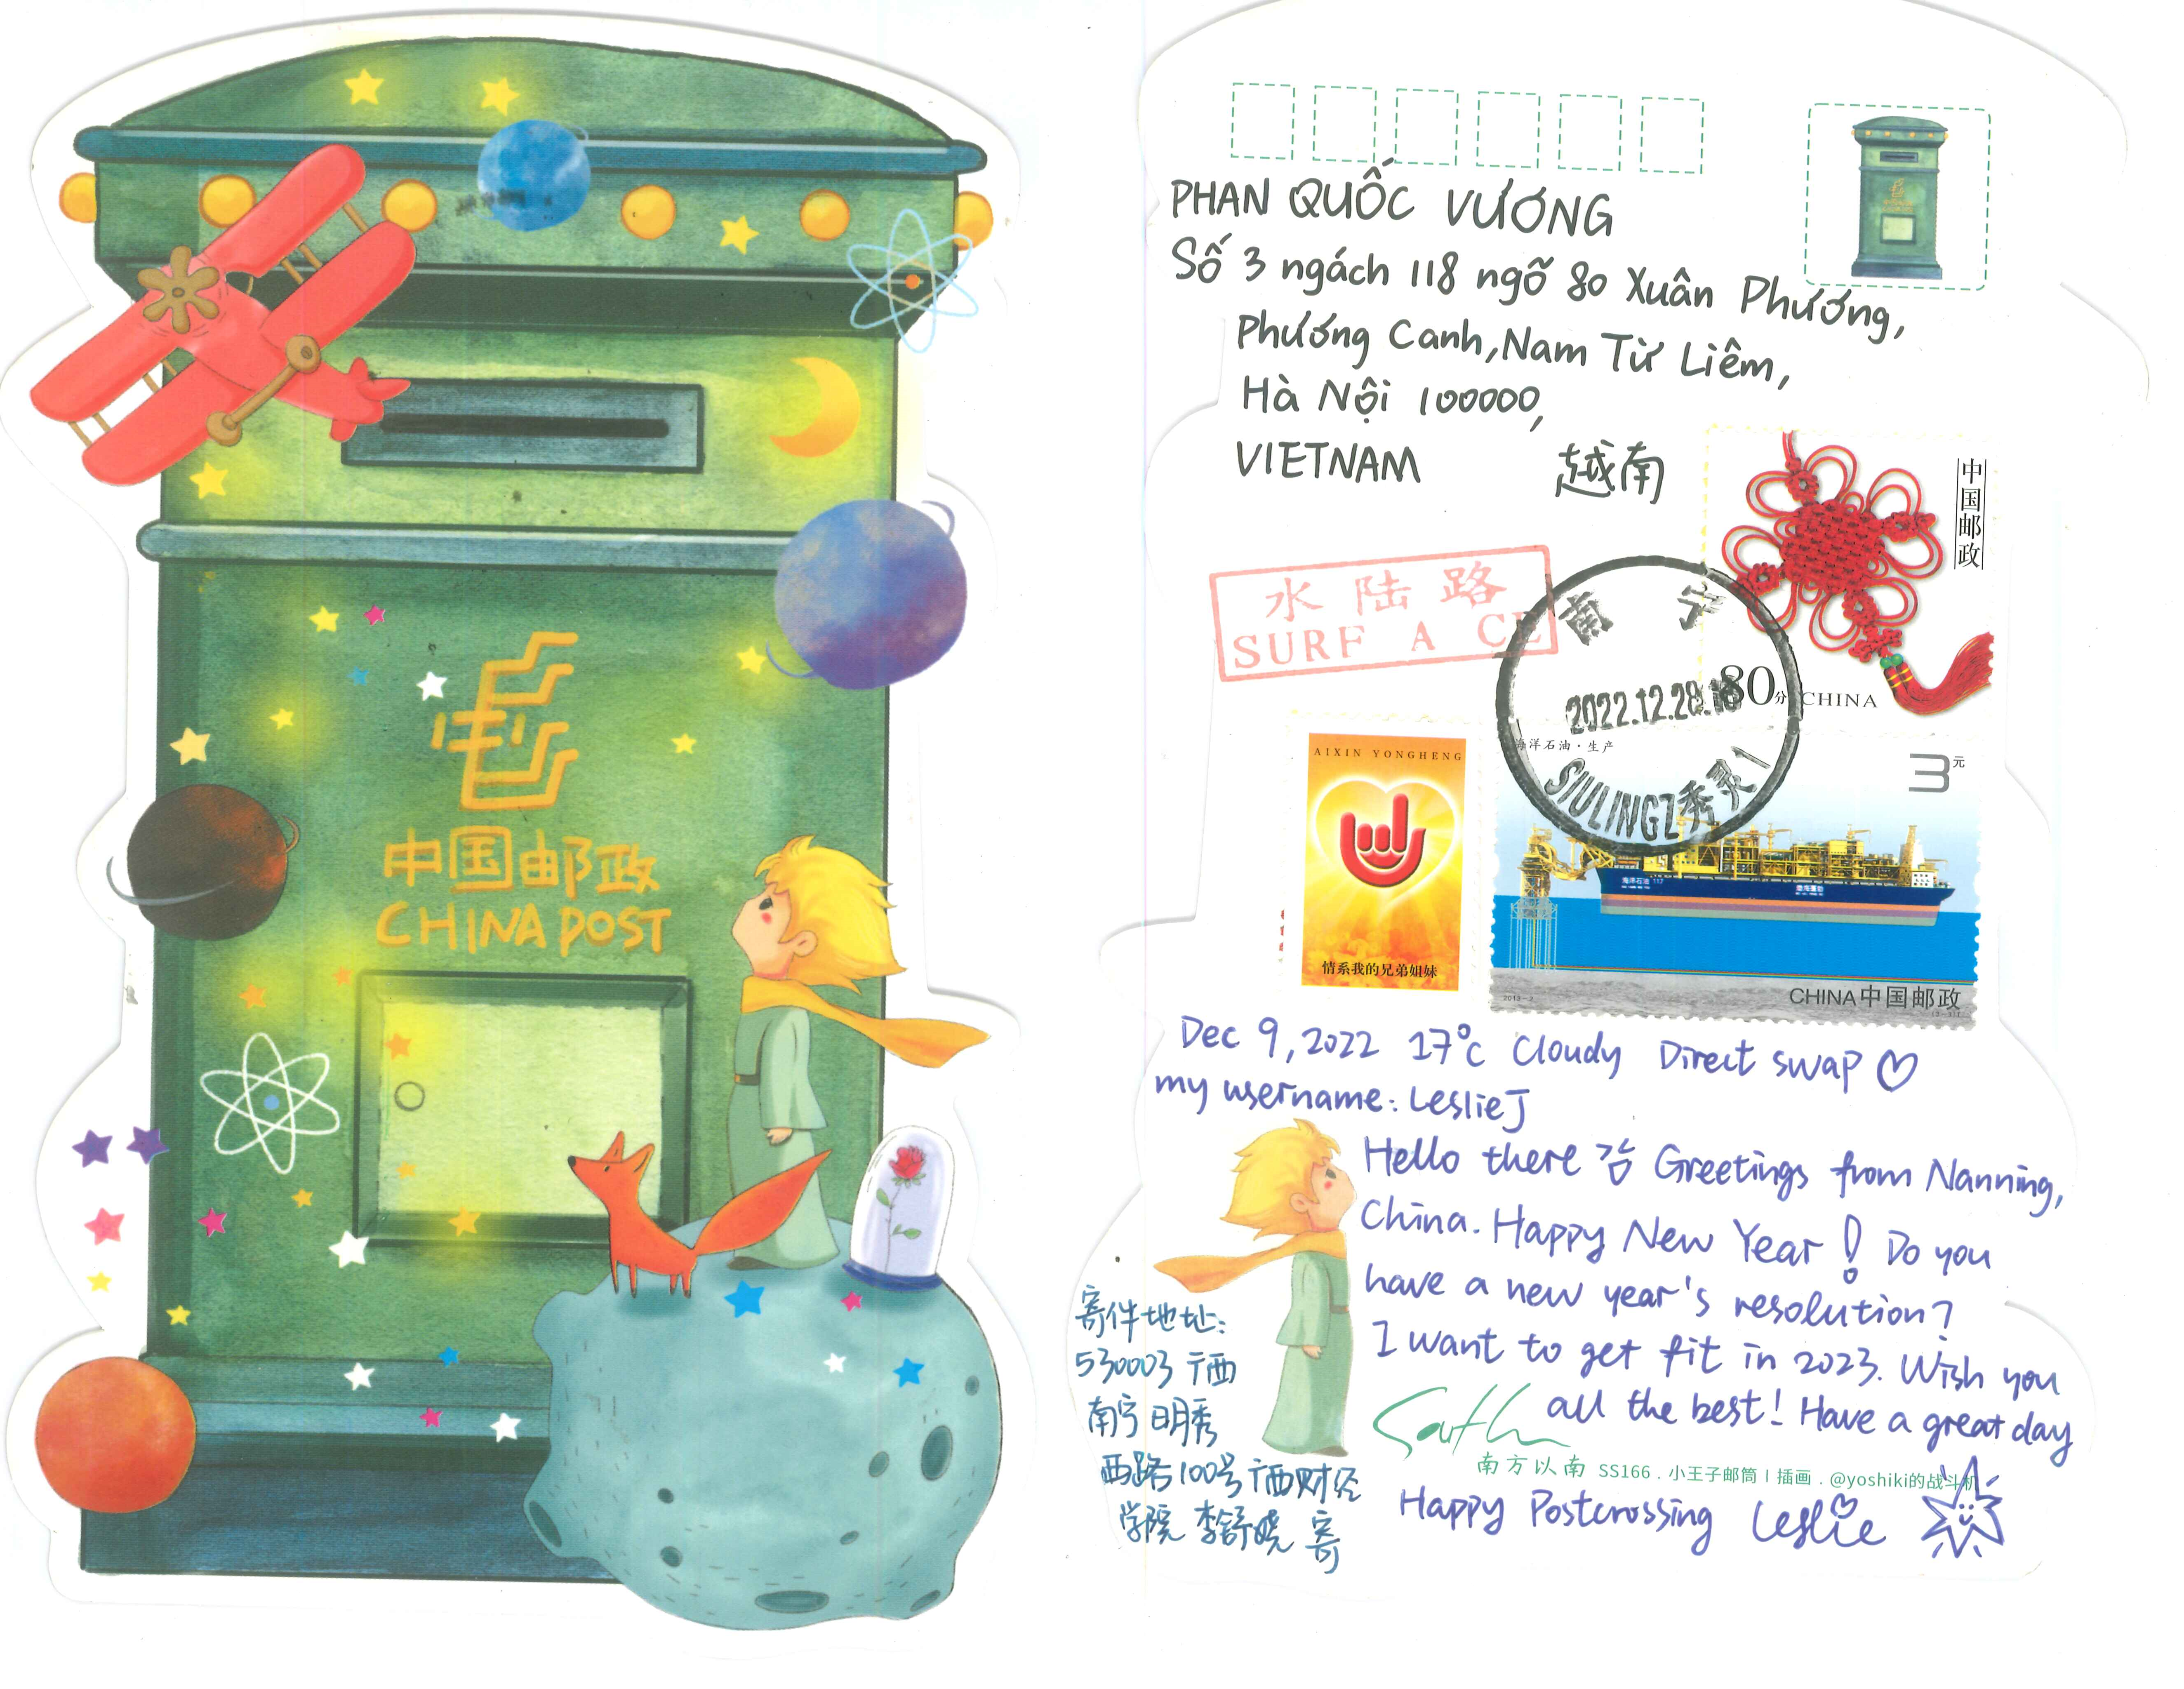 中国邮政
CHINA POST
PHAN QUỐC VƯƠNG
Số 3 ngách 118 ngõ 80 Xuân Phương,
Phương Canh, Nam Từ Liêm,
Hà Nội 100000,
VIETNAM 越南
中国邮政
80分 CHINA
水陆路
SURF A CE
南宁
2022.12.28.18
SIULING 秀灵
海洋石油·生产
3元
海洋石油 117
CHINA中国邮政
2013-2
AIXIN YONGHENG
情系我的兄弟姐妹
Dec 9, 2022 17°C Cloudy Direct swap ♡
my username: LeslieJ
Hello there Greetings from Nanning,
China. Happy New Year! Do you
have a new year's resolution?
I want to get fit in 2023. Wish you
all the best! Have a great day
寄件地址:
530003 广西
南宁 明秀
西路100号 广西财经
学院 李舒婉 寄
South
南方以南 SS166 . 小王子邮筒 | 插画 . @yoshiki的战斗机
Happy Postcrossing Leslie